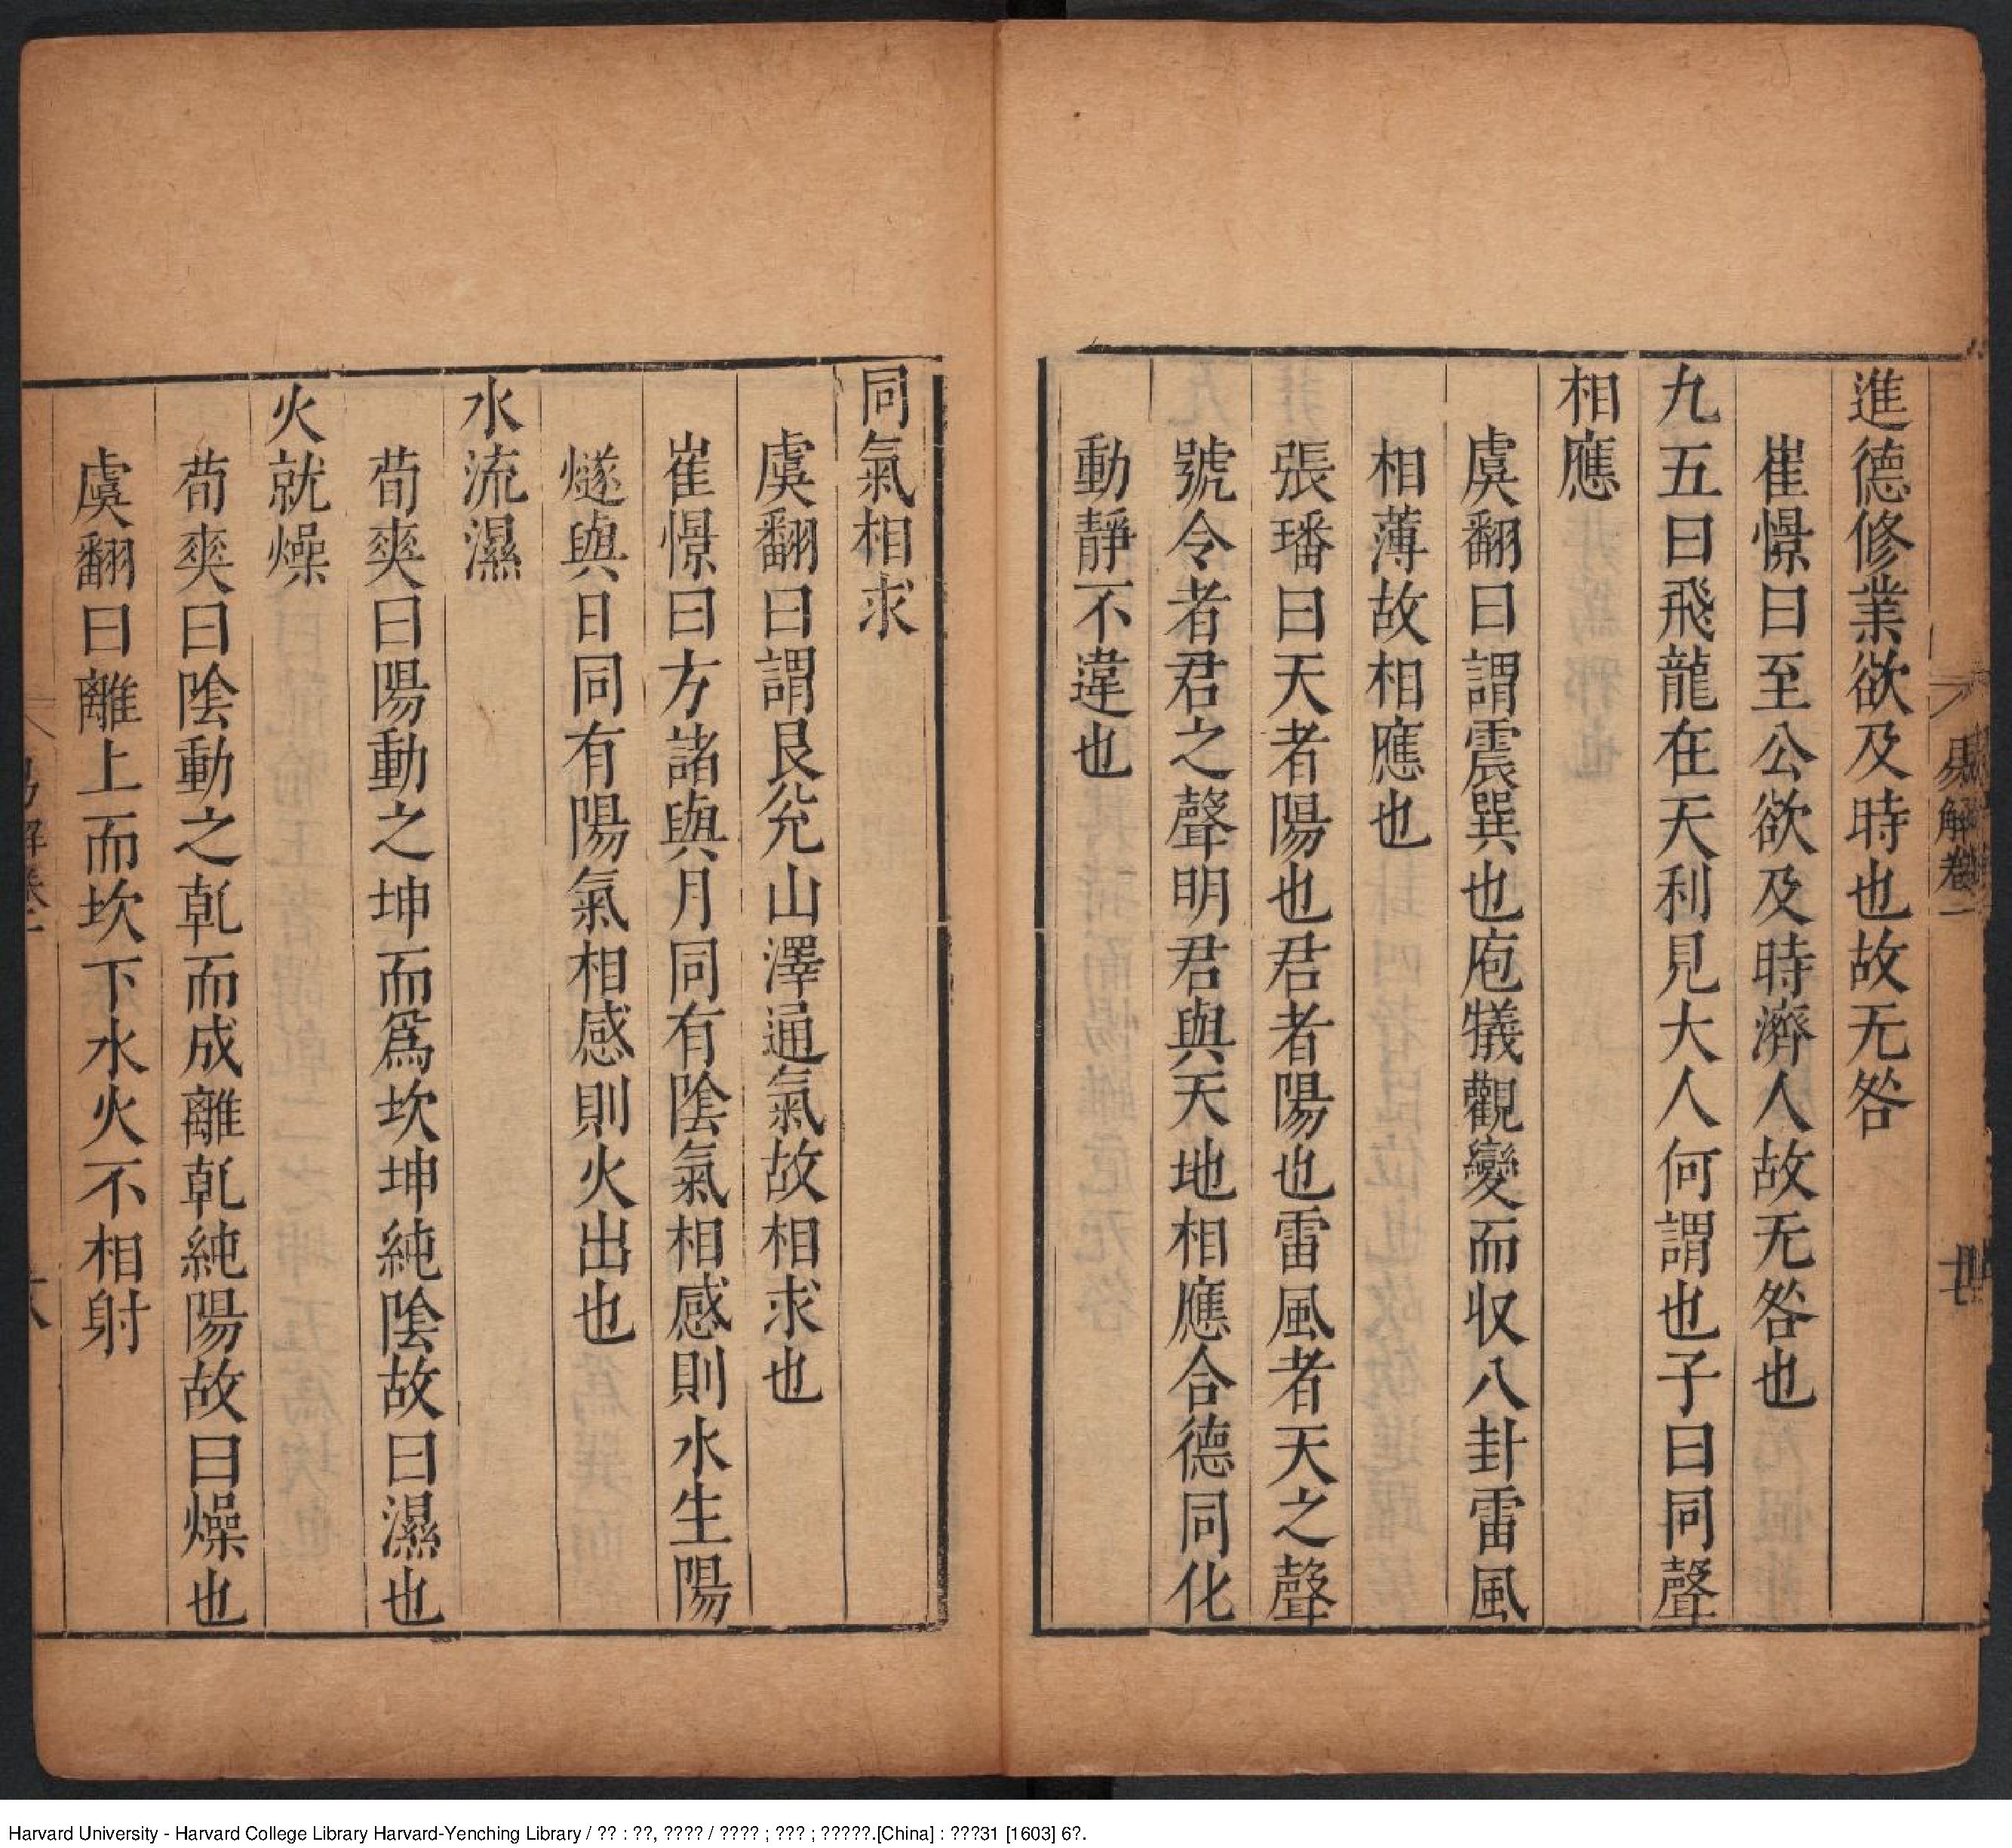 進德修業欲及時也故无咎
崔憬曰至公欲及時濟人故无咎也
九五曰飛龍在天利見大人何謂也子曰同聲
相應
虞翻曰謂震巽也庖犧觀變而収八卦雷風
相薄故相應也
張璠曰天者陽也君者陽也雷風者天之聲
號令者君之聲明君與天地相應合德同化
動靜不違也
同氣相求
虞翻曰謂艮兊山澤通氣故相求也
崔憬曰方諸與月同有陰氣相感則水生陽
燧與日同有陽氣相感則火出也
水流濕
荀爽曰陽動之坤而爲坎坤純陰故曰濕也
火就燥
荀爽曰陰動之乹而成離乹純陽故曰燥也
虞翻曰離上而坎下水火不相射
易解卷一
Harvard University - Harvard College Library Harvard-Yenching Library / ?? : ??, ???? / ???? ; ??? ; ?????.[China] : ???31 [1603] 6?.